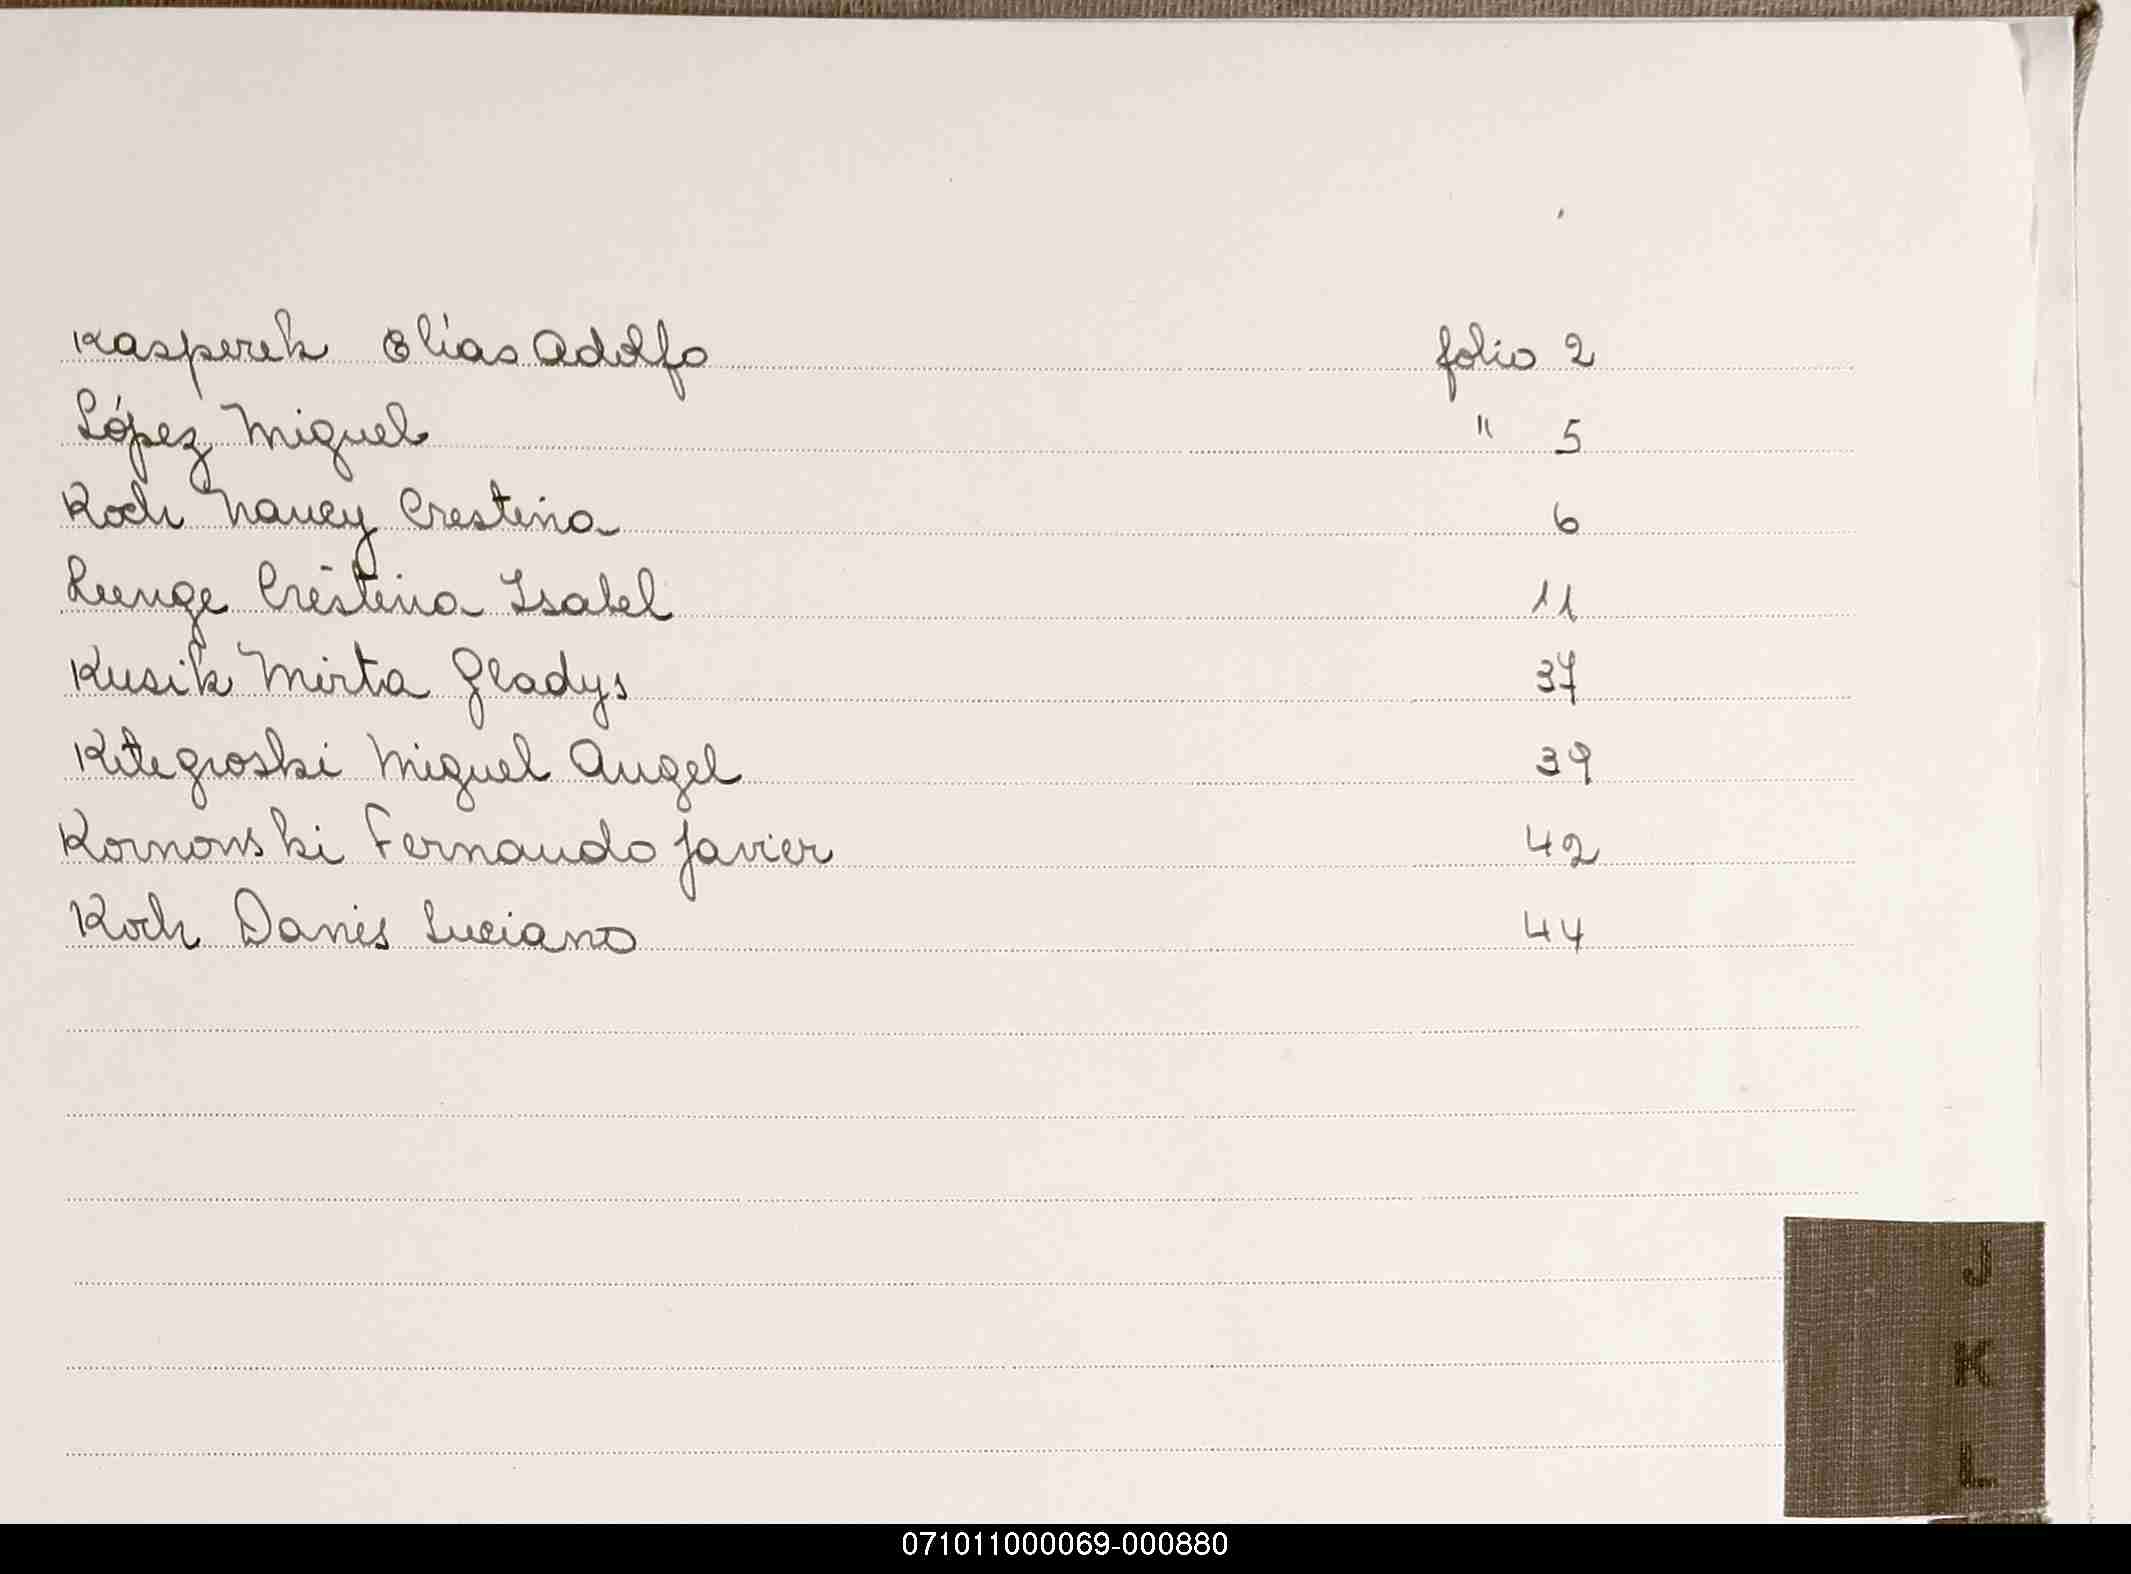 Kasperek Elías Adolfo folio 2
López Miguel " 5
Koch Nancy Cristina 6
Lunge Cristina Isabel 11
Kusik Mirta Gladys 37
Kitegroski Miguel Angel 39
Kornowski Fernando Javier 42
Koch Danis Luciano 44
J
K
L
071011000069-000880